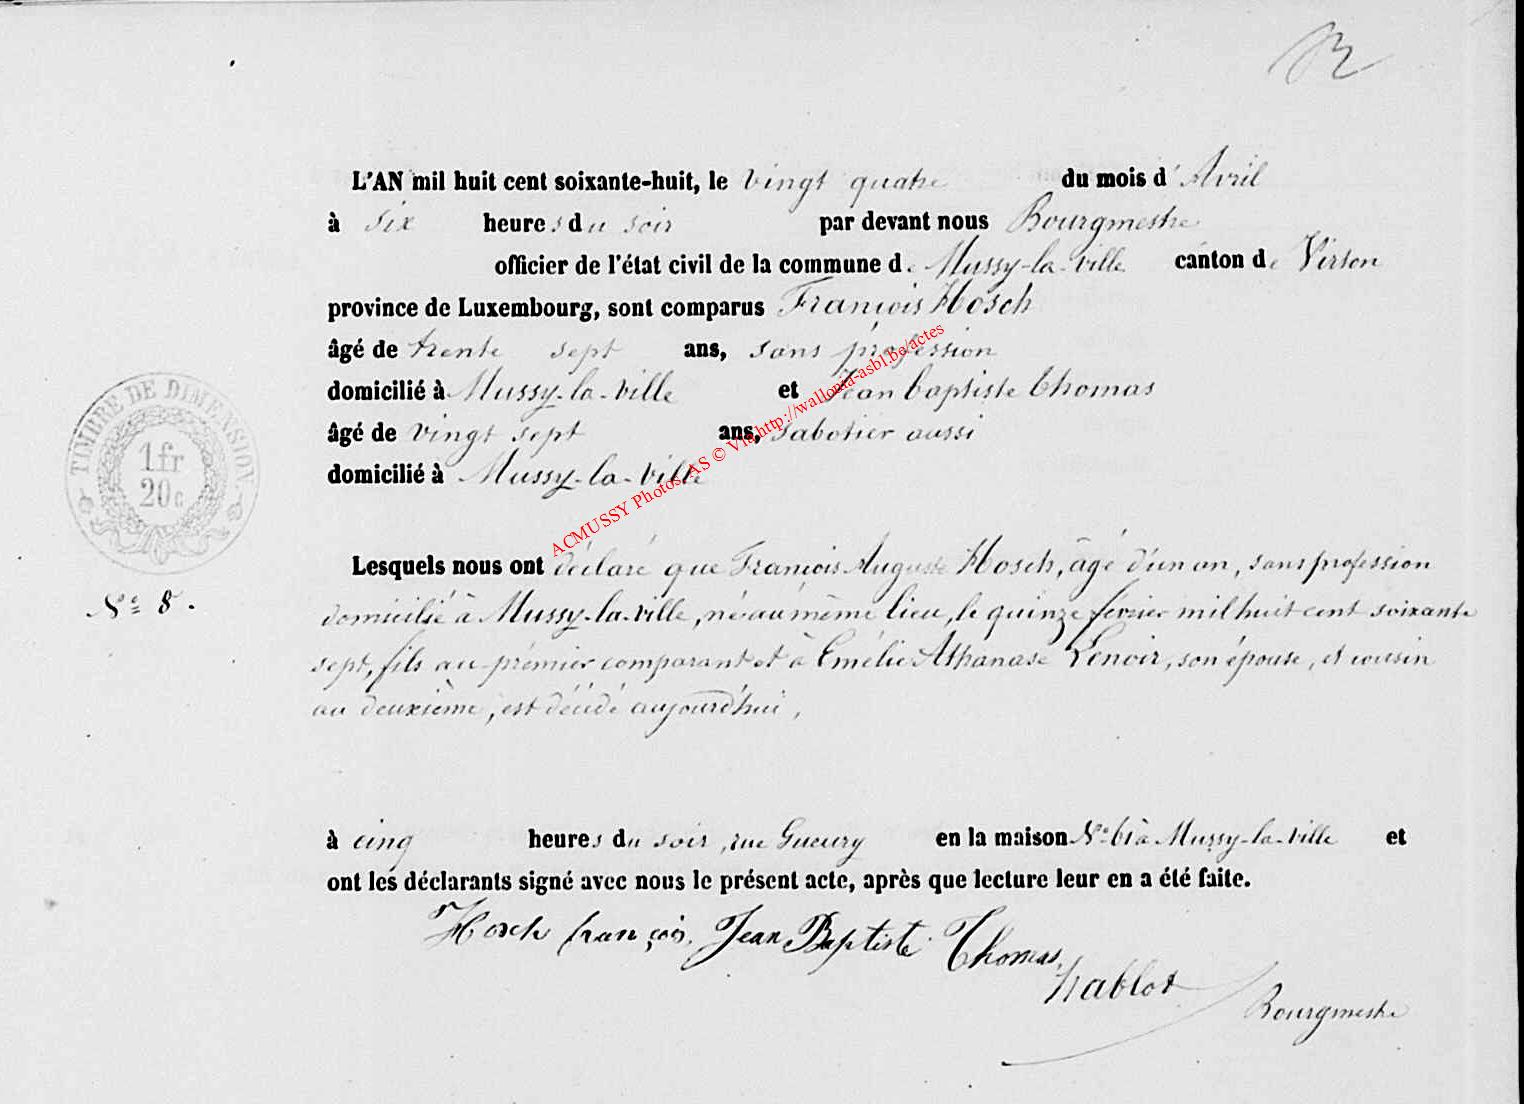 L'AN mil huit cent soixante-huit, le vingt quatre du mois d'Avril
à six heures du soir par devant nous Bourgmestre
officier de l'état civil de la commune de Mussy-la-ville canton de Virton
province de Luxembourg, sont comparus François Hosch
âgé de trente sept ans, sans profession
domicilié à Mussy-la-ville et Jean baptiste thomas
âgé de vingt sept ans, sabotier aussi
domicilié à Mussy-la-ville
TIMBRE DE DIMENSION
1 fr
20 c
ACMUSSY Photos AS © Via http://wallonia-asbl.be/actes
Lesquels nous ont déclaré que François Auguste Hosch, âgé d'un an, sans profession
N° 8.
domicilié à Mussy-la-ville, né au même lieu, le quinze février mil huit cent soixante
sept, fils au premier comparant et à Emélie Athanase Lenoir, son épouse, et cousin
au deuxième, est décédé aujourd'hui,
à cinq heures du soir, rue Gueury en la maison N° 61 à Mussy-la-ville et
ont les déclarants signé avec nous le présent acte, après que lecture leur en a été faite.
Hosch françois. Jean Baptiste Thomas
Bourgmestre